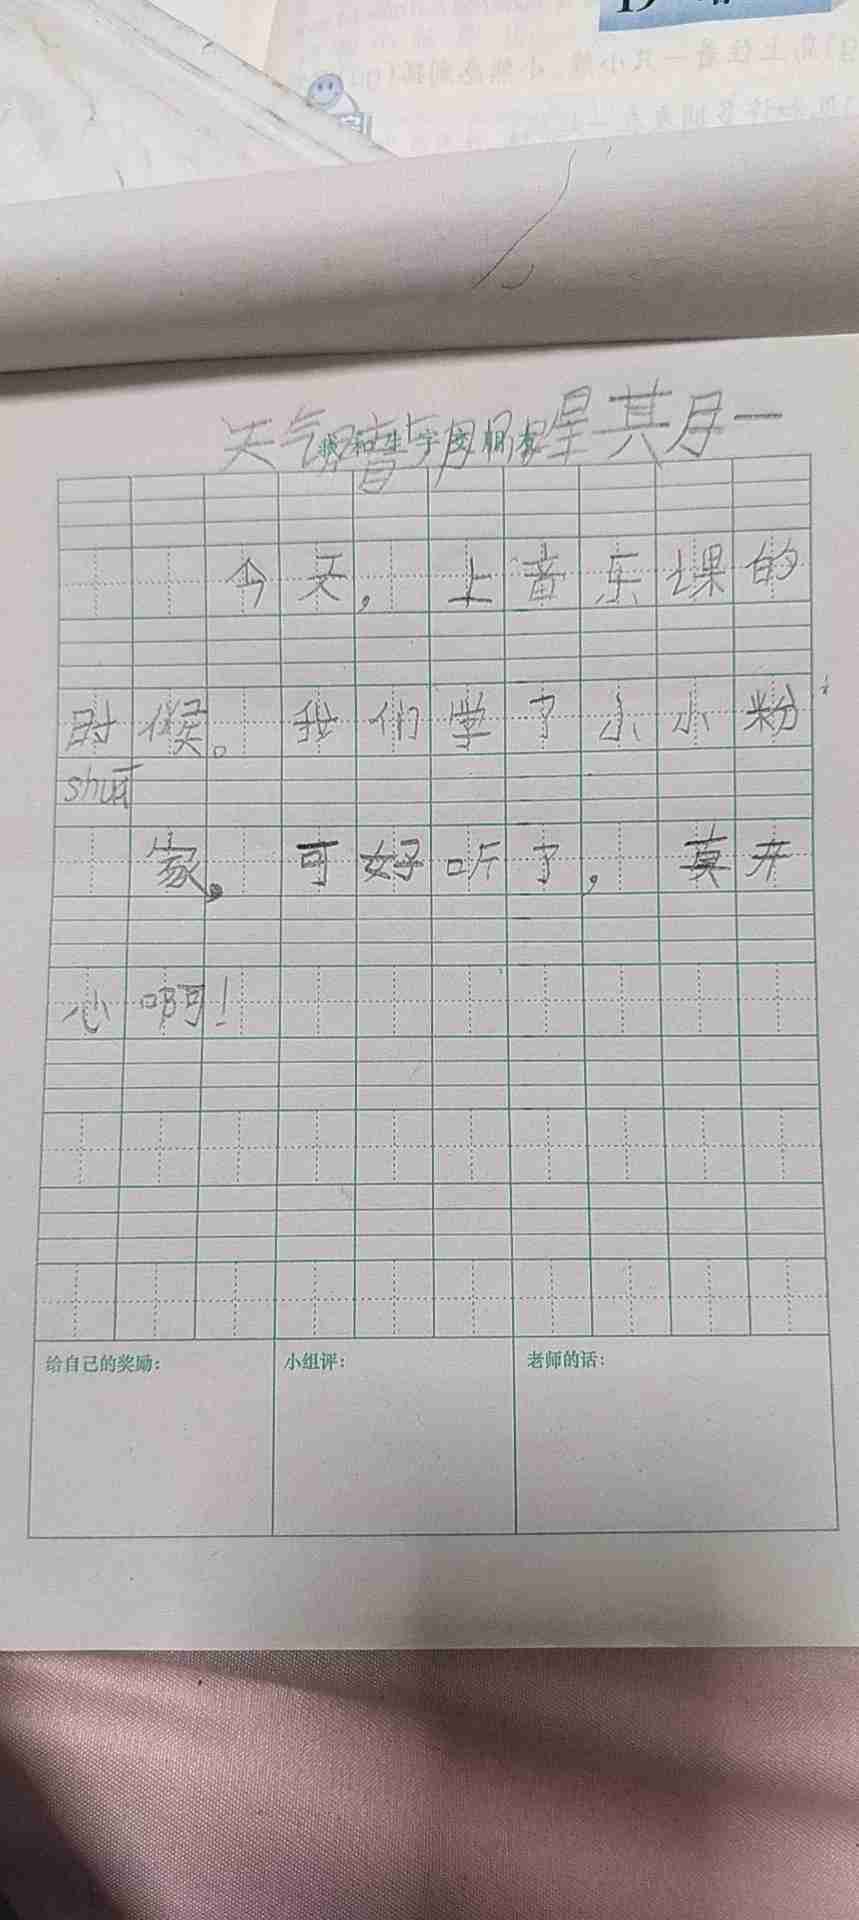 天气 星其月一
今天，上音乐课的
时候。我们学了小小粉
shuā
家。可好听了，真开
心啊！
给自己的奖励：
小组评：
老师的话：